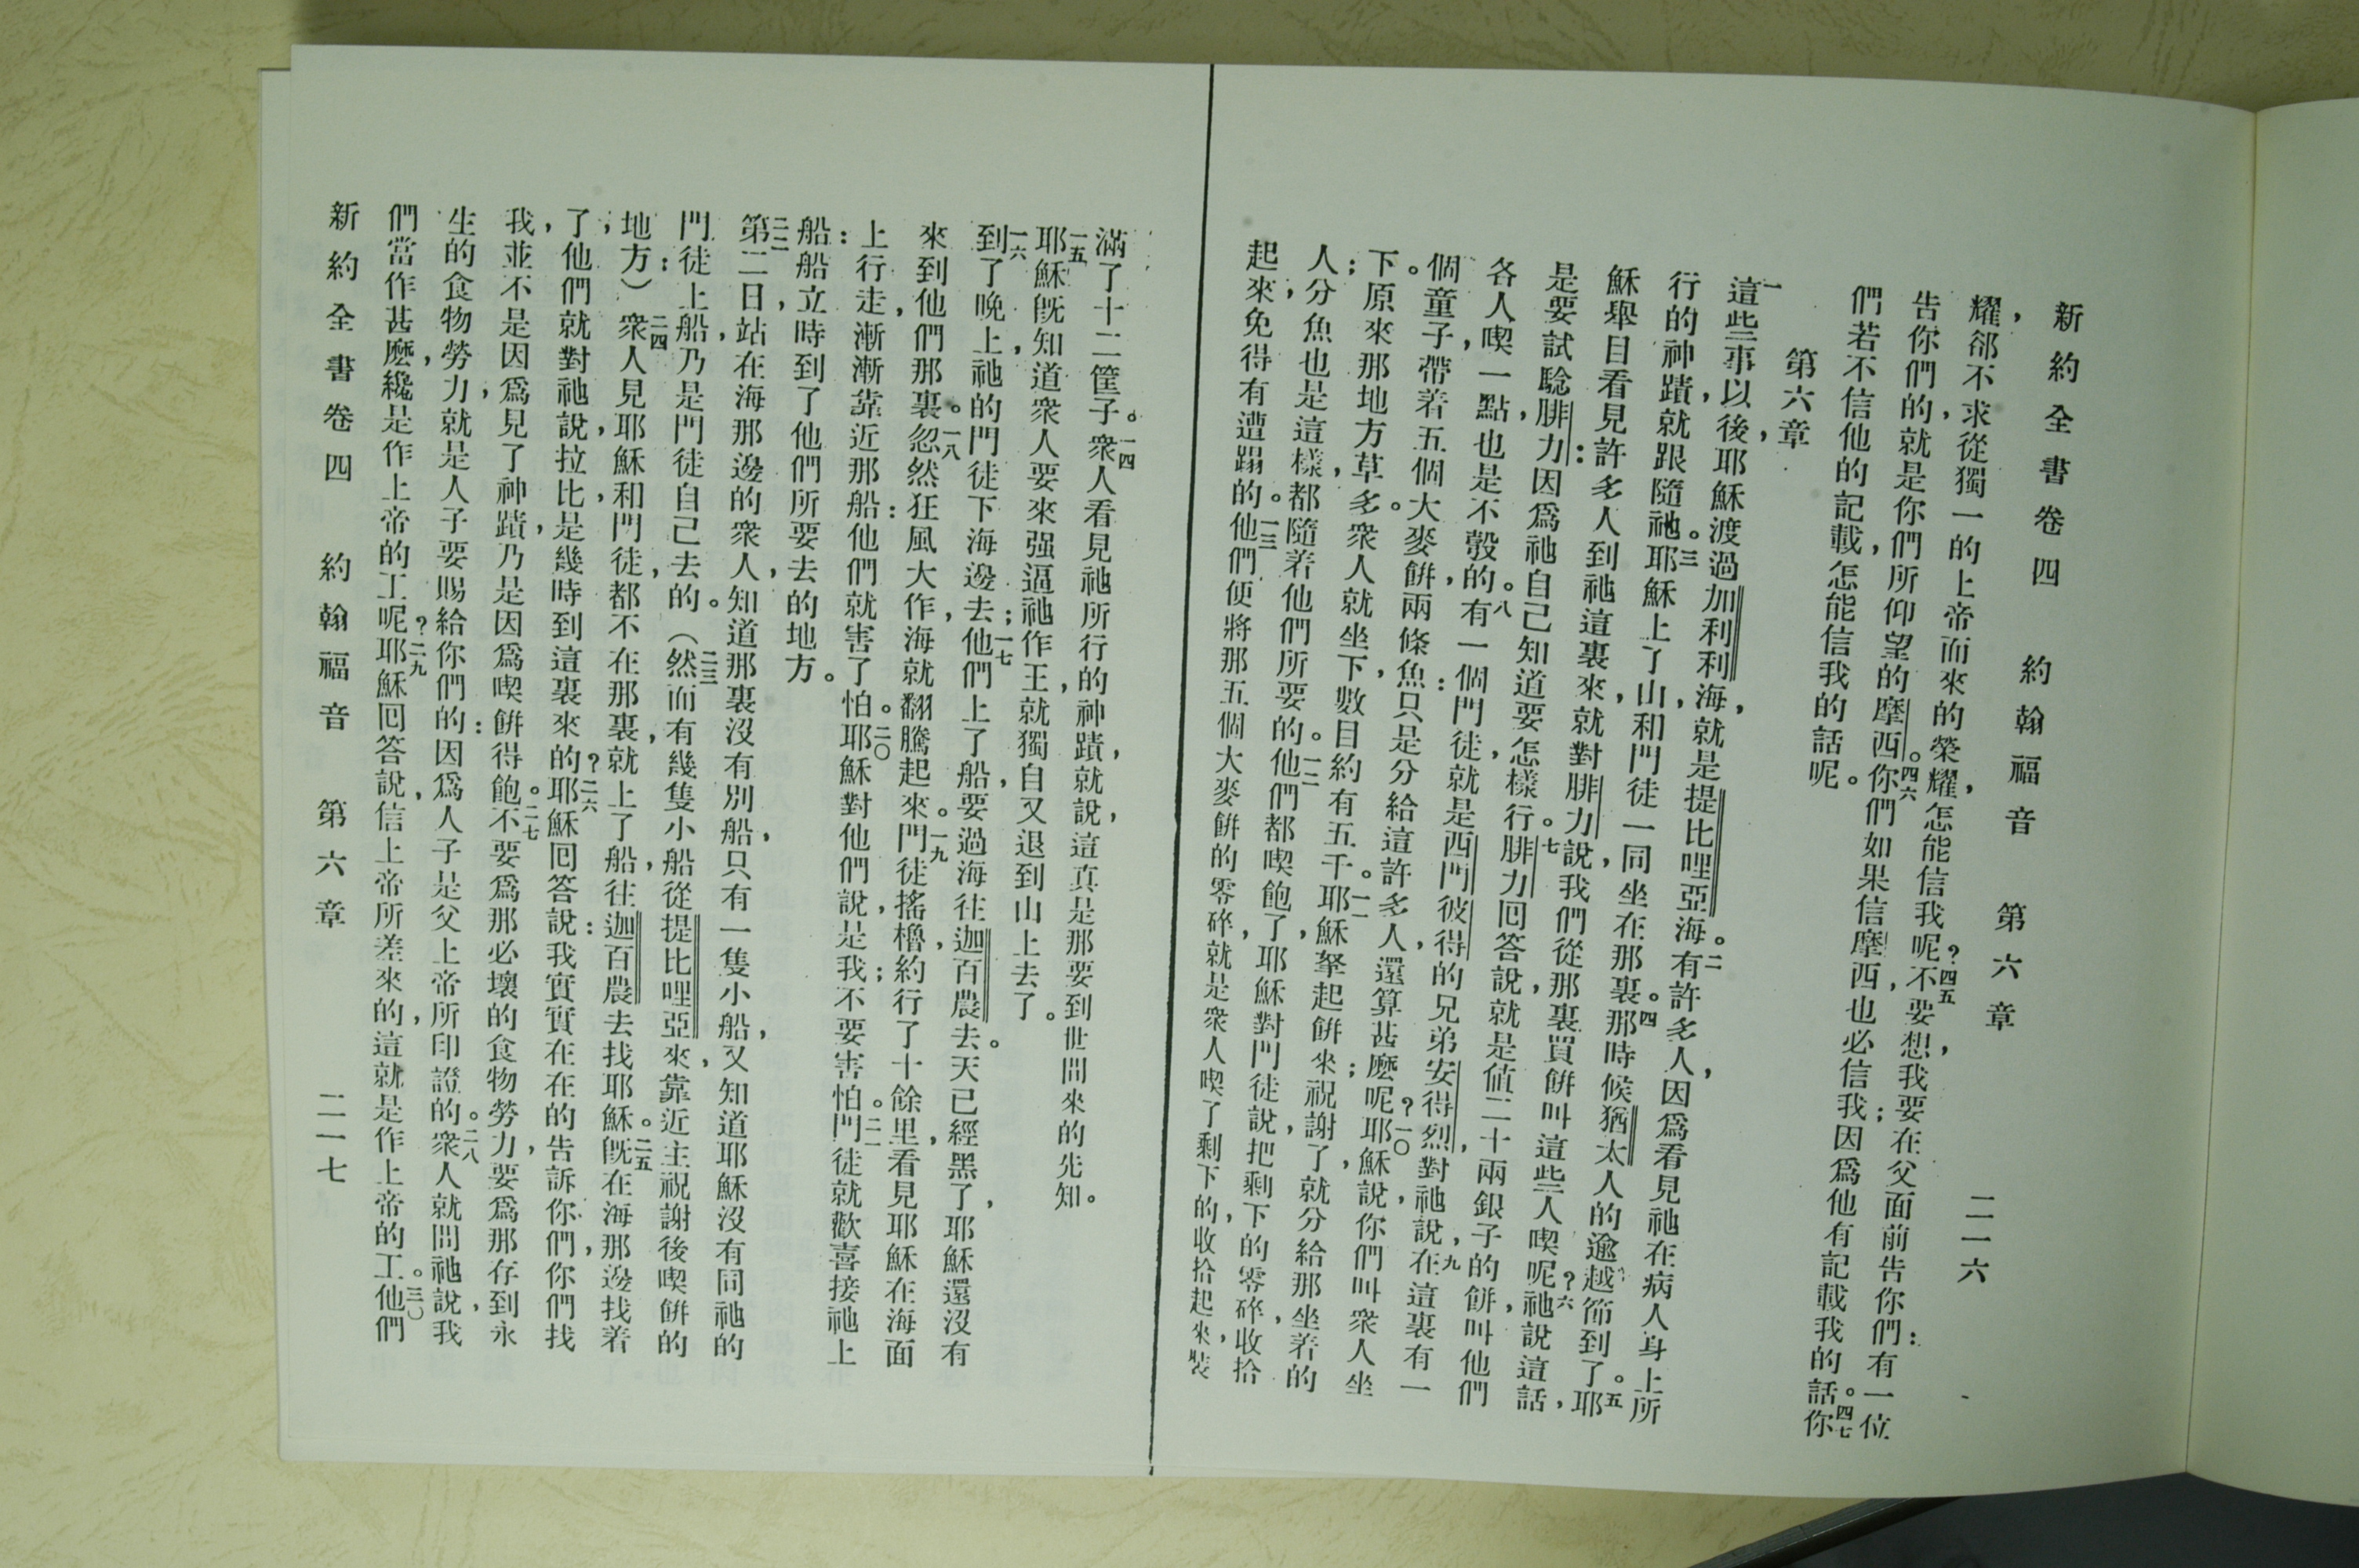 新約全書卷四　約翰福音　第六章　二一六
耀，郤不求從獨一的上帝而來的榮耀，怎能信我呢？四五不要想我要在父面前
告你們的，就是你們所仰望的摩西。四六你們如果信摩西，也必信我；因爲他有記載我的話。四七你
們若不信他的記載，怎能信我的話呢。
第六章
一這些事以後，耶穌渡過加利利海，就是提比哩亞海。二有許多人，因爲看見祂在病人身上所
行的神蹟，就跟隨祂。三耶穌上了山，和門徒一同坐在那裏。四那時候猶太人的逾越節到了。五耶
穌舉目看見許多人到祂這裏來，就對腓力說，我們從那裏買餠叫這些人喫呢？六祂說這話，
是要試騐腓力：因爲祂自己知道要怎樣行。七腓力囘答說，就是値二十兩銀子的餠，叫他們
各人喫一點，也是不彀的。八有一個門徒，就是西門彼得的兄弟安得烈，對祂說，九在這裏有一
個童子，帶着五個大麥餠，兩條魚：只是分給這許多人，還算甚麽呢？一〇耶穌說，你們叫衆人坐
下。原來那地方草多。衆人就坐下，數目約有五千。一一耶穌拏起餠來；祝謝了，就分給那坐着的
人；分魚也是這樣，都隨着他們所要的。一二他們都喫飽了，耶穌對門徒說，把剩下的零碎，收拾
起來，免得有遭蹋的。一三他們便將那五個大麥餠的零碎，就是衆人喫了剩下的，收拾起來，裝
滿了十二筐子。一四衆人看見祂所行的神蹟，就說，這真是那要到世間來的先知。
一五耶穌旣知道衆人要來强逼祂作王，就獨自又退到山上去了。
一六到了晚上，祂的門徒下海邊去；一七他們上了船，要過海往迦百農去。天已經黑了，耶穌還沒有
來到他們那裏。一八忽然狂風大作，海就翻騰起來。一九門徒搖櫓，約行了十餘里，看見耶穌在海面
上行走，漸漸靠近那船：他們就害了怕。二〇耶穌對他們說，是我；不要害怕。二一門徒就歡喜接祂上
船：船立時到了他們所要去的地方。
二二第二日，站在海那邊的衆人，知道那裏沒有別船，只有一隻小船，又知道耶穌沒有同祂的
門徒上船，乃是門徒自己去的。二三（然而有幾隻小船從提比哩亞來，靠近主祝謝後喫餠的
地方：）二四衆人見耶穌和門徒，都不在那裏，就上了船，往迦百農去找耶穌。二五旣在海那邊找着
了他們就對祂說，拉比，是幾時到這裏來的？二六耶穌囘答說：我實實在在的告訴你們，你們找
我，並不是因爲見了神蹟，乃是因爲喫餠得飽。二七不要爲那必壞的食物勞力，要爲那存到永
生的食物勞力，就是人子要賜給你們的：因爲人子是父上帝所印證的。二八衆人就問祂說，我
們當作甚麽，纔是作上帝的工呢？二九耶穌囘答說，信上帝所差來的，這就是作上帝的工。三〇他們
新約全書卷四　約翰福音　第六章　二一七